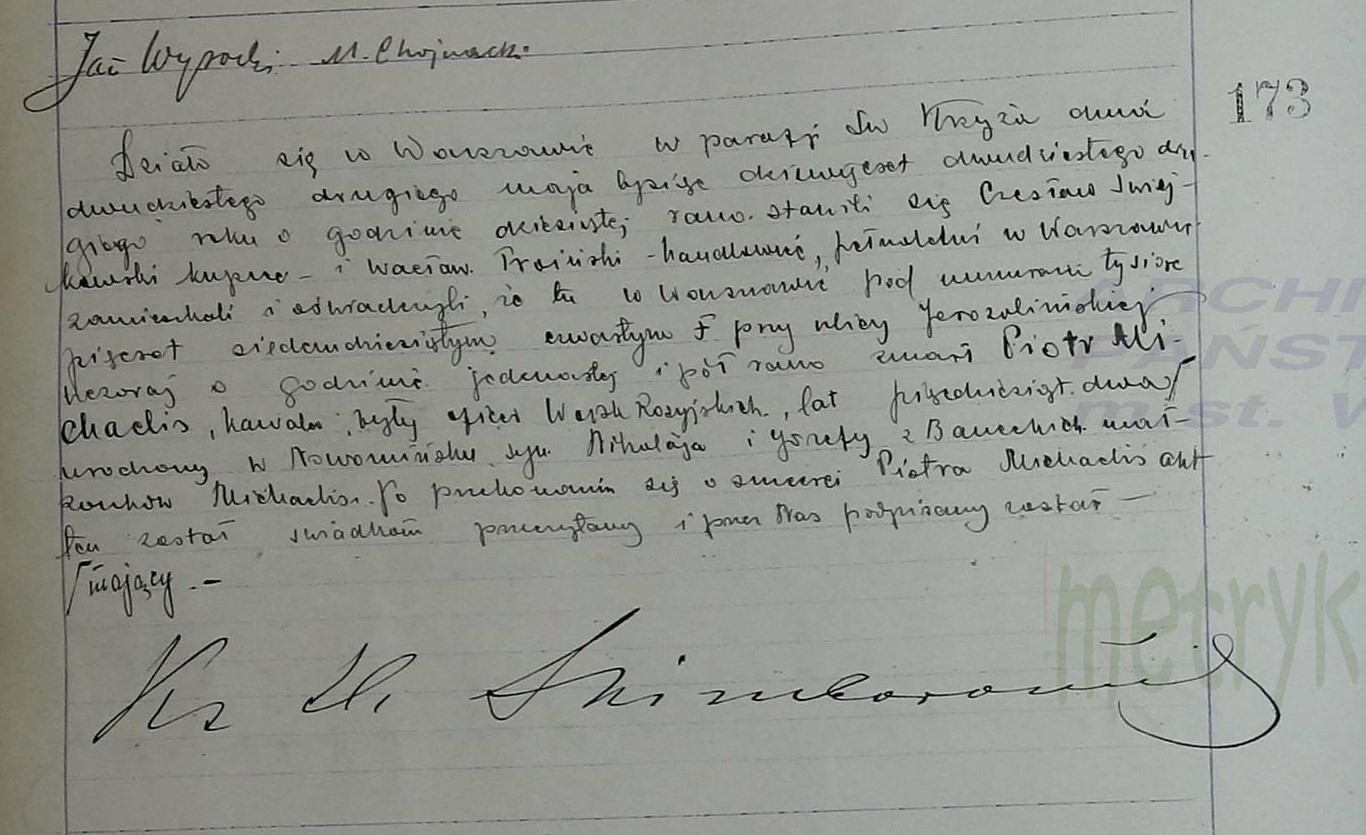 Jan Wysocki M. Chojnacki
173
Działo się w Warszawie w parafji Św Krzyża dnia
dwudziestego drugiego maja tysiąc dziewięćset dwudziestego dru-
giego roku o godzinie dziesiątej rano. stawili się Czesław
kupiec - i Wacław - handlowiec, pełnoletni w Warszawie
zamieszkali i oświadczyli, że tu w Warszawie pod numerem tysiąc
pięćset siedemdziesiątym czwartym F przy ulicy Jerozolimskiej
wczoraj o godzinie jedenastej i pół rano zmarł Piotr Mi-
chaelis, kawaler, były oficer Wojsk Rosyjskich, lat pięćdziesiąt dwa
urodzony w Nowomińsku syn Mikołaja i Józefy z mał-
żonków Michaelis. Po przekonaniu się o śmierci Piotra Michaelis akt
ten został świadkom przeczytany i przez Nas podpisany został —
mający. -
Ks
ARCHI
PAŃST
m.st. W
metryk